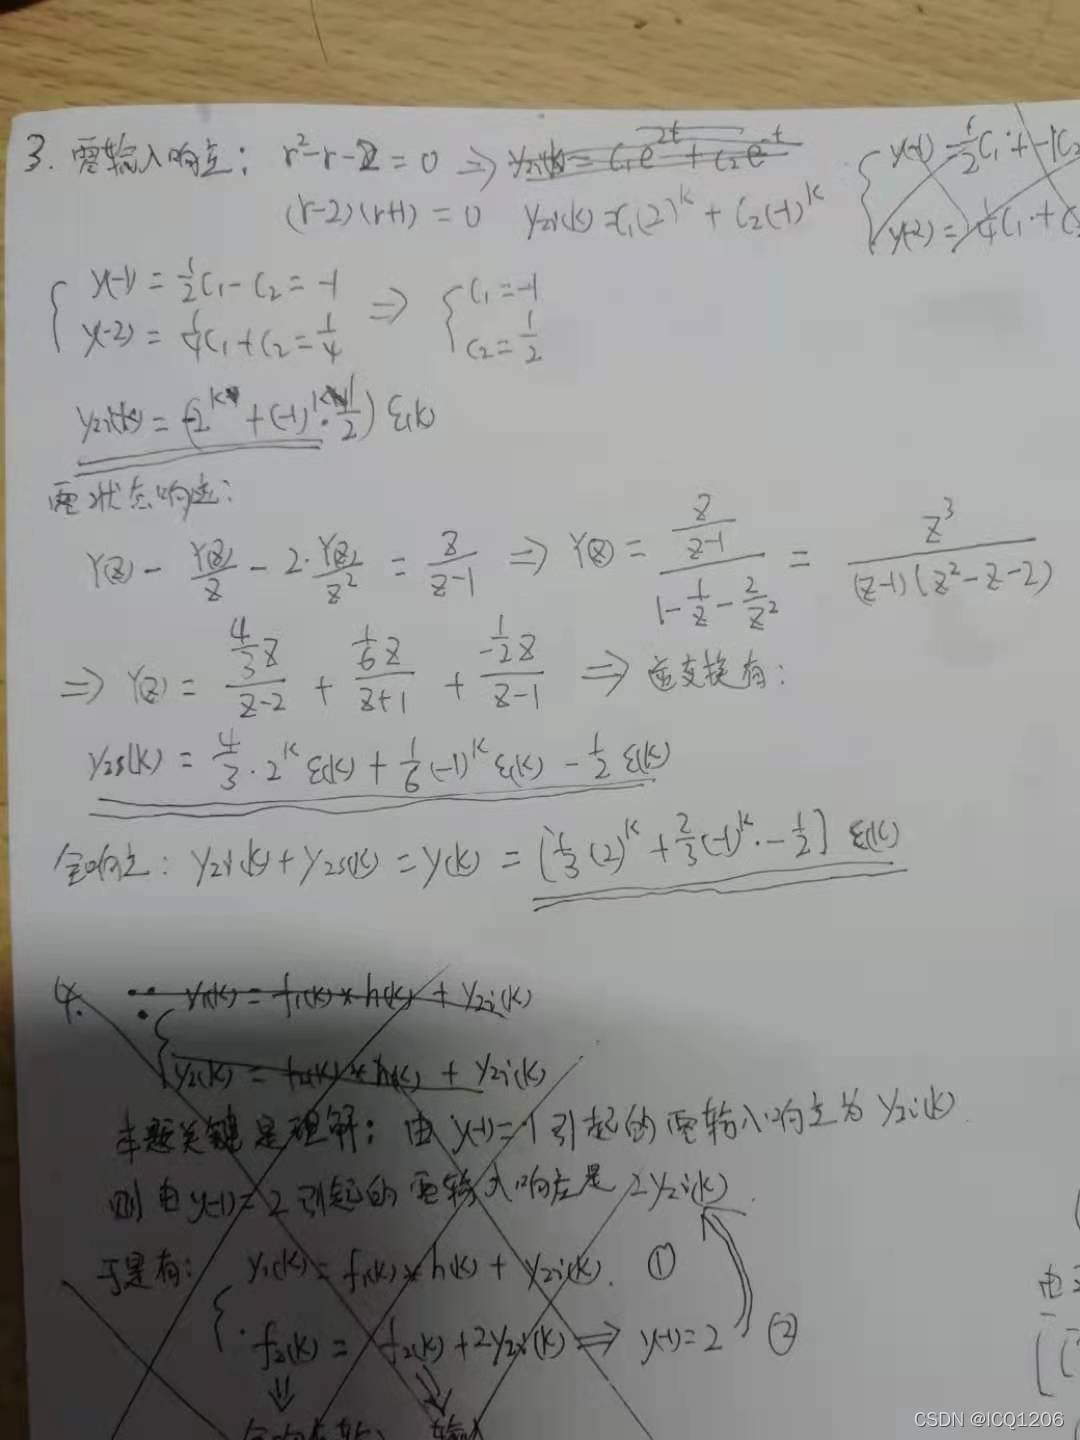 3. 零输入响应: r²-r-2=0 ⇒ yzi(k)=C₁e^2t+C₂e^-t
(r-2)(r+1)=0 yzi(k)=C₁(2)^k+C₂(-1)^k
{ y(-1)=1/2C₁+-1C₂
y(-2)=1/4C₁+C₂
{ y(-1)=1/2C₁-C₂=-1 ⇒ { C₁=-1
y(-2)=1/4C₁+C₂=1/4 C₂=1/2
yzi(k)=(-2^k+(-1)^k·1/2)ε(k)
零状态响应:
Y(z)-Y(z)/z-2·Y(z)/z²=z/(z-1) ⇒ Y(z)=(z/(z-1))/(1-1/z-2/z²)=z³/((z-1)(z²-z-2))
⇒ Y(z)=(4/3z)/(z-2)+(1/6z)/(z+1)+(-1/2z)/(z-1) ⇒ 逆变换有:
yzs(k)=4/3·2^kε(k)+1/6(-1)^kε(k)-1/2ε(k)
全响应: yzi(k)+yzs(k)=y(k)=[1/3(2)^k+2/3(-1)^k·-1/2]ε(k)
4. ∵ { y₁(k)=f₁(k)*h(k)+yzi(k)
y₂(k)=f₂(k)*h(k)+yzi(k)
本题关键是理解: 由y(-1)=1引起的零输入响应为yzi(k)
则由y(-1)=2引起的零输入响应是2yzi(k)
于是有: { y₁(k)=f₁(k)*h(k)+yzi(k). ①
f₂(k)=f₂(k)+2yzi(k) ⇒ y(-1)=2 ②
⇓ ⇓
全响应 输
由
CSDN @ICQ1206